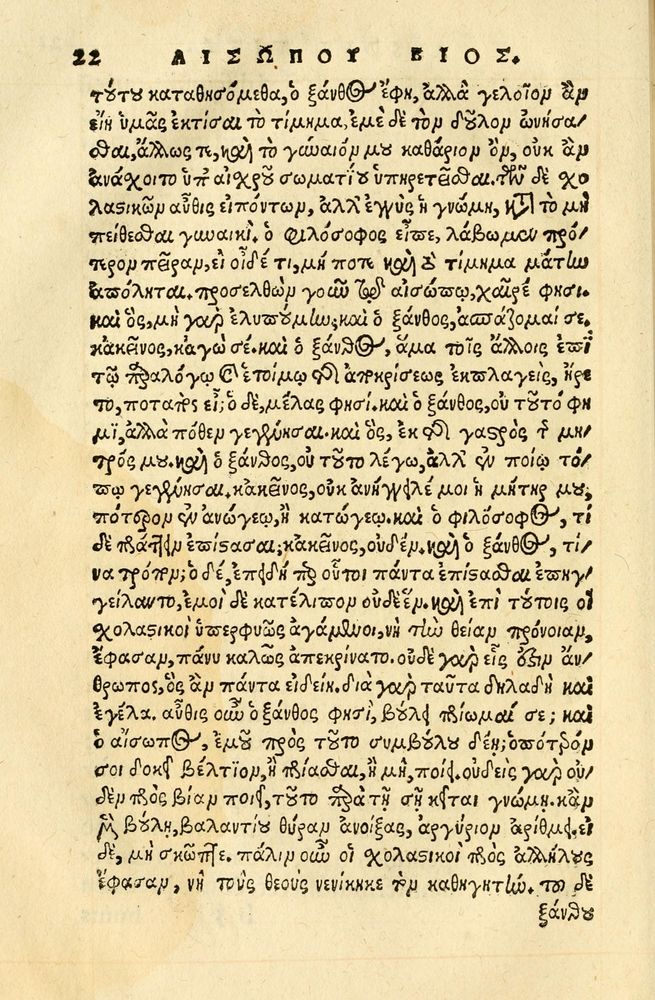 22 ΑΙΣΩΠΟΥ ΒΙΟΣ.
τούτου καταθησόμεθα, ὁ ξάνθος ἔφη, ἀλλὰ γελοῖον ἂν
εἴη ὑμᾶς ἐκτίσαι τὸ τίμημα, ἐμὲ δὲ τὸν δοῦλον ὠνήσα/
σθαι, ἄλλως τε, καὶ τὸ γύναιόν μου καθάριον ὂν, οὐκ ἂν
ἀνάχοιτο ὑπ' αἰχροῦ σωματίου ὑπηρετεῖσθαι. τῶν δὲ χο/
λαστικῶν αὖθις εἰπόντων, ἀλλ' ἐγγὺς ἡ γνώμη, καὶ τὸ μὴ
πείθεσθαι γυναικί. ὁ φιλόσοφος εἶπε, λάβωμεν πρό/
τερον πεῖραν, εἰ οἶδέ τι, μή ποτε καὶ τὸ τίμημα μάτην
ἀπόληται. προσελθὼν γοῦν τῷ αἰσώπῳ, χαῖρέ φησι.
καὶ ὃς, μὴ γὰρ ἐλυπούμην; καὶ ὁ ξάνθος, ἀσπάζομαί σε.
κἀκεῖνος, κἀγώ σέ. καὶ ὁ ξάνθος, ἅμα τοῖς ἄλλοις ἐπὶ
τῷ παραλόγῳ καὶ ἑτοίμῳ τῆς ἀποκρίσεως ἐκπλαγεὶς, ἤρε
το, ποταπὸς εἶ; ὁ δὲ, μέλας φησί. καὶ ὁ ξάνθος, οὐ τοῦτό φη
μί, ἀλλὰ πόθεν γεγέννησαι. καὶ ὃς, ἐκ τῆς γαστρὸς τῆς μη/
τρός μου. καὶ ὁ ξάνθος, οὐ τοῦτο λέγω, ἀλλ' ἐν ποίῳ τό/
πῳ γεγέννησαι. κἀκεῖνος, οὐκ ἀνήγγειλέ μοι ἡ μήτηρ μου,
πότερον ἐν ἀνώγεῳ, ἢ κατώγεῳ. καὶ ὁ φιλόσοφος, τί
δὲ πράττειν ἐπίστασαι; κἀκεῖνος, οὐδέν. καὶ ὁ ξάνθος, τί/
να τρόπον; ὁ δὲ, ἐπειδήπερ οὗτοι πάντα ἐπίστασθαι ἐπηγ/
γείλαντο, ἐμοὶ δὲ κατέλιπον οὐδέν. καὶ ἐπὶ τούτοις οἱ
χολαστικοὶ ὑπερφυῶς ἀγάμενοι, νὴ τὴν θείαν πρόνοιαν,
ἔφασαν, πάνυ καλῶς ἀπεκρίνατο. οὐδὲ γὰρ εἷς ἐστιν ἄν/
θρωπος, ὃς ἂν πάντα εἰδείη. διὰ γὰρ ταῦτα δηλαδὴ καὶ
ἐγέλα. αὖθις οὖν ὁ ξάνθος φησὶ, βούλει πρίωμαί σε; καὶ
ὁ αἴσωπος, ἐμοῦ πρὸς τοῦτο συμβούλου δέῃ; ὁπότερόν
σοι δοκεῖ βέλτιον, ἢ πρίασθαι, ἢ μὴ, ποίει. οὐδεὶς γὰρ οὐ/
δὲν πρὸς βίαν ποιεῖ, τοῦτο παρὰ τῇ σῇ κεῖται γνώμῃ. κἂν
μὲν βούλῃ, βαλαντίου θύραν ἀνοίξας, ἀργύριον ἀρίθμει, εἰ
δὲ, μὴ σκῶπτε. πάλιν οὖν οἱ χολαστικοὶ πρὸς ἀλλήλους
ἔφασαν, νὴ τοὺς θεοὺς νενίκηκε τὸν καθηγητήν. τοῦ δὲ
ξάνθου